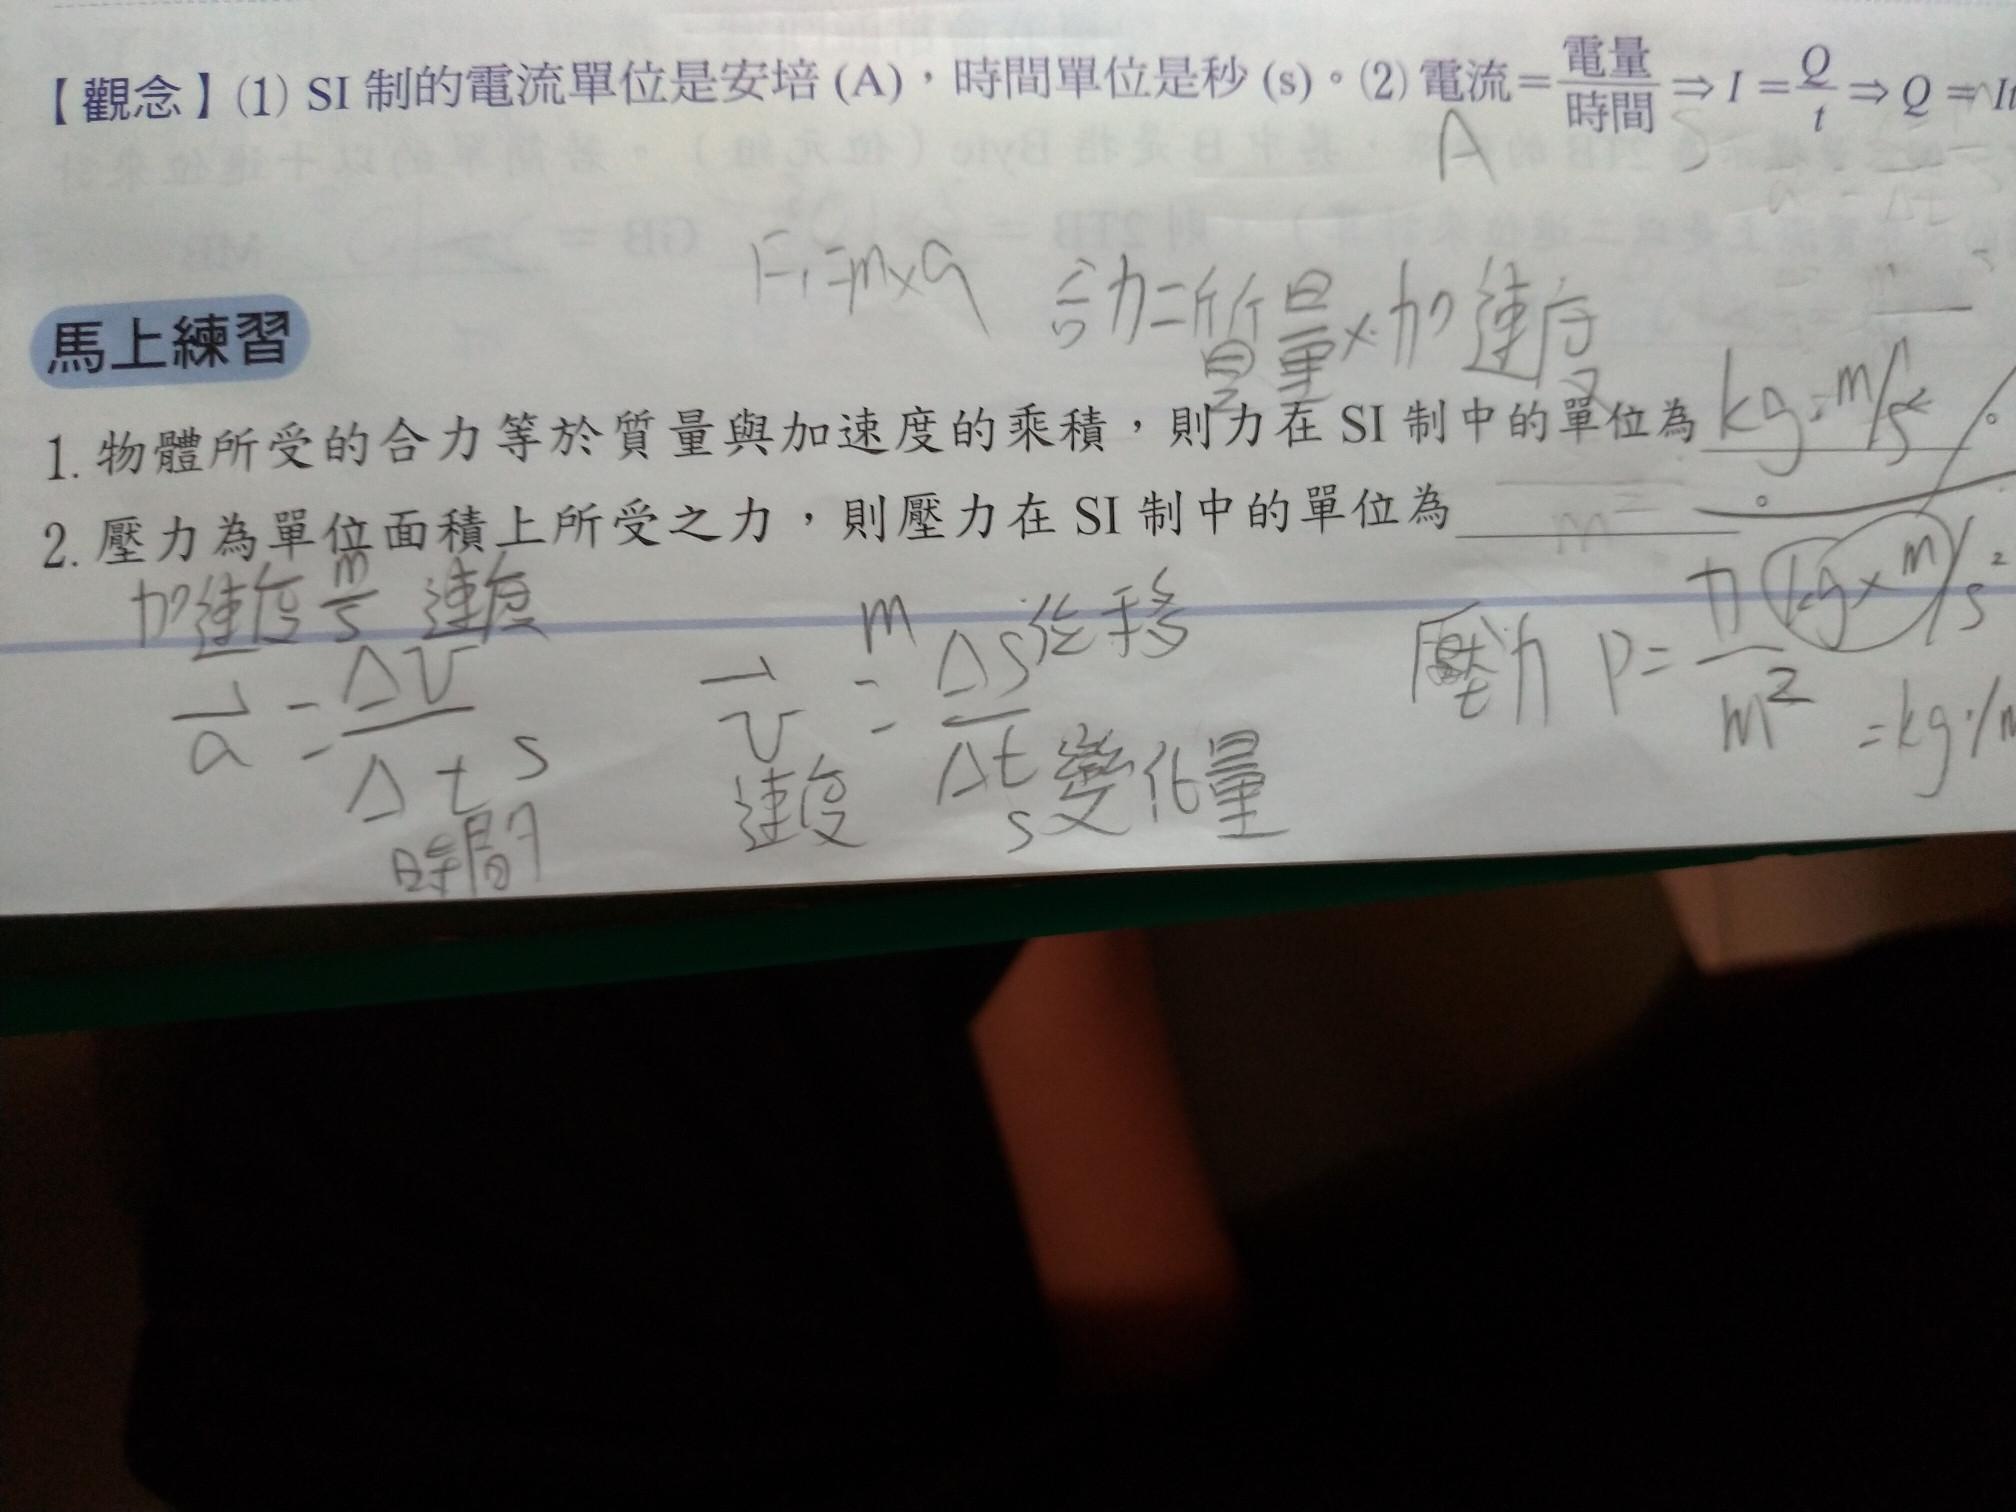 【觀念】(1) SI 制的電流單位是安培 (A)，時間單位是秒 (s)。(2) 電流=電量/時間 ⇒ I = Q/t ⇒ Q = It
A S
F = m×a 合力=質量×加速度
馬上練習
1. 物體所受的合力等於質量與加速度的乘積，則力在 SI 制中的單位為 kg·m/s² 。
2. 壓力為單位面積上所受之力，則壓力在 SI 制中的單位為 。
加速度 m/s 速度
a = ΔV/Δt s
時間
m
v = ΔS/Δt 位移
速度 s 變化量
壓力 P = 力 kg×m/s² / m²
= kg·/m